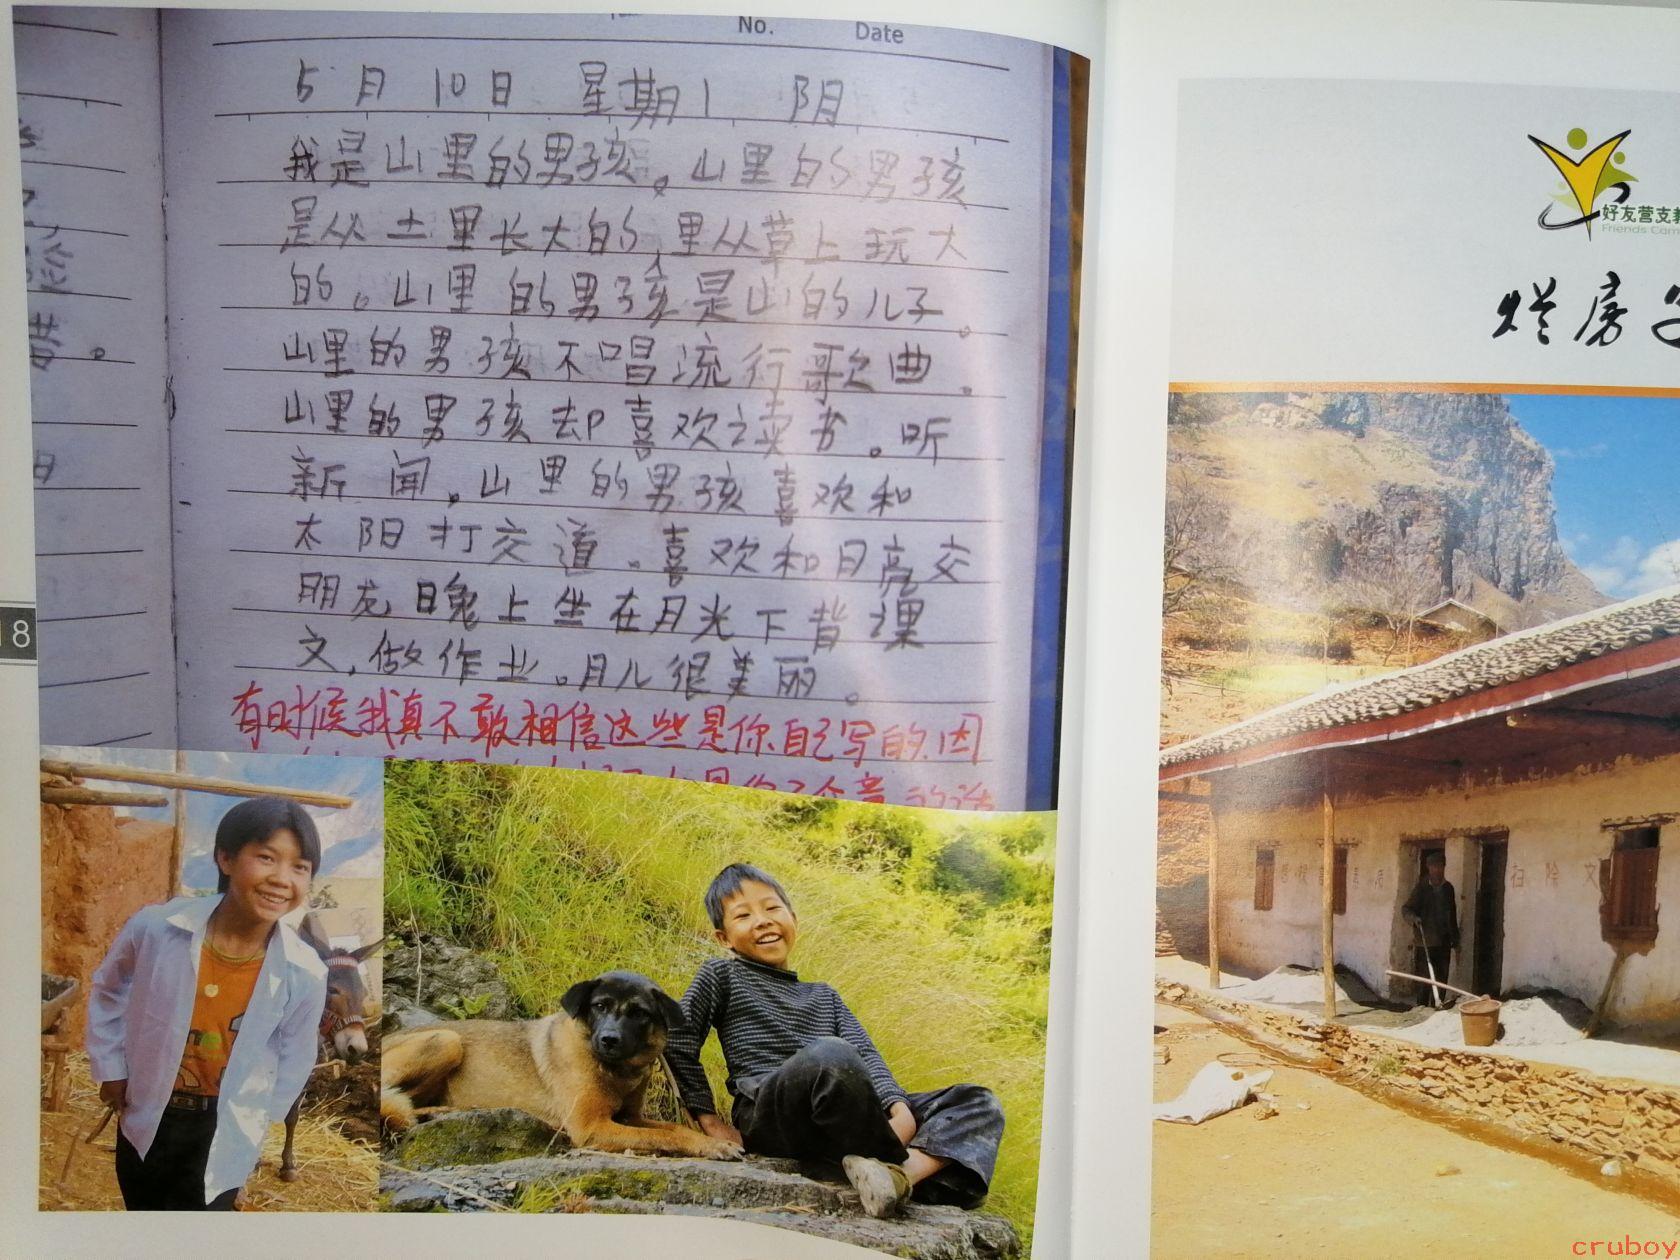 No. Date
5月10日 星期1 阴
我是山里的男孩。山里的男孩
是从土里长大的,里从草上玩大
的。山里的男孩是山的儿子。
山里的男孩不唱流行歌曲。
山里的男孩却喜欢读书。听
新闻。山里的男孩喜欢和
太阳打交道。喜欢和月亮交
朋友晚上坐在月光下背课
文,做作业。月儿很美丽。
有时候我真不敢相信这些是你自己写的.因
18
好友营支教
Friends Cam
烂房
扫除文
cruboy